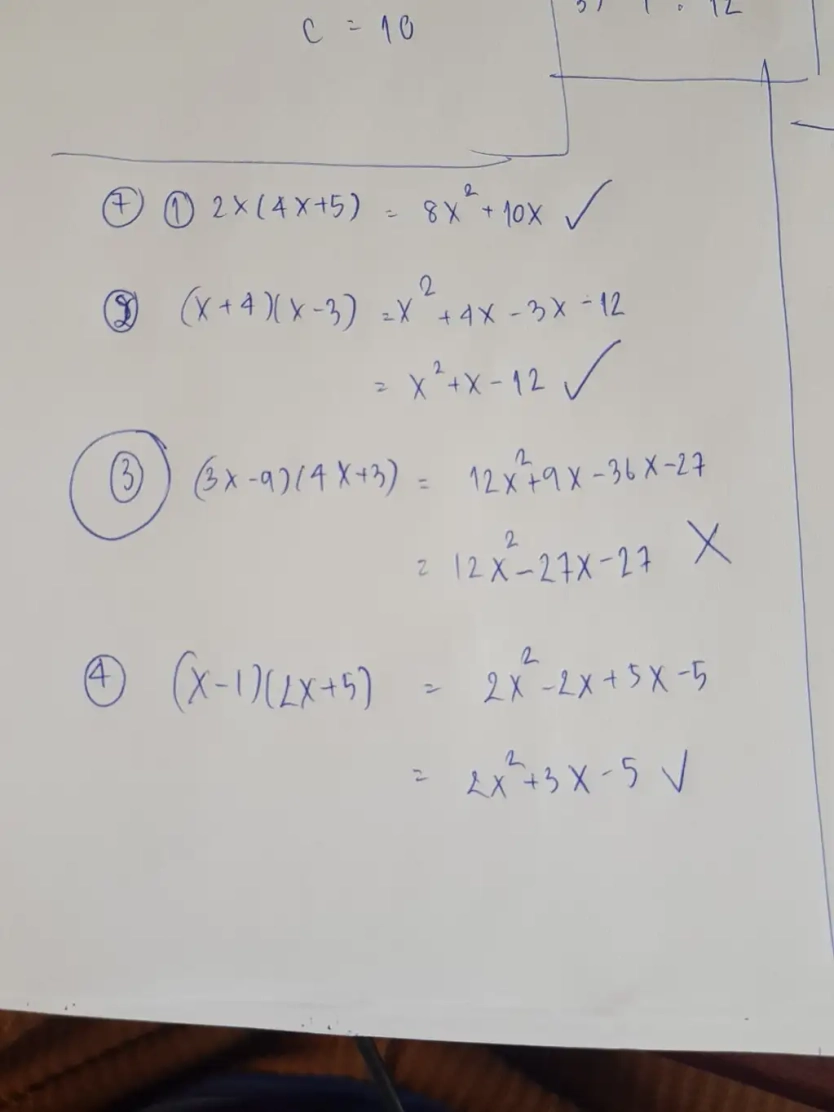 C = 10
12
⑦ ① 2x(4x+5) = 8x² + 10x ✓
② (x+4)(x-3) = x² + 4x - 3x - 12
= x² + x - 12 ✓
③ (3x-9)(4x+3) = 12x² + 9x - 36x - 27
= 12x² - 27x - 27 X
④ (x-1)(2x+5) = 2x² - 2x + 5x - 5
= 2x² + 3x - 5 ✓